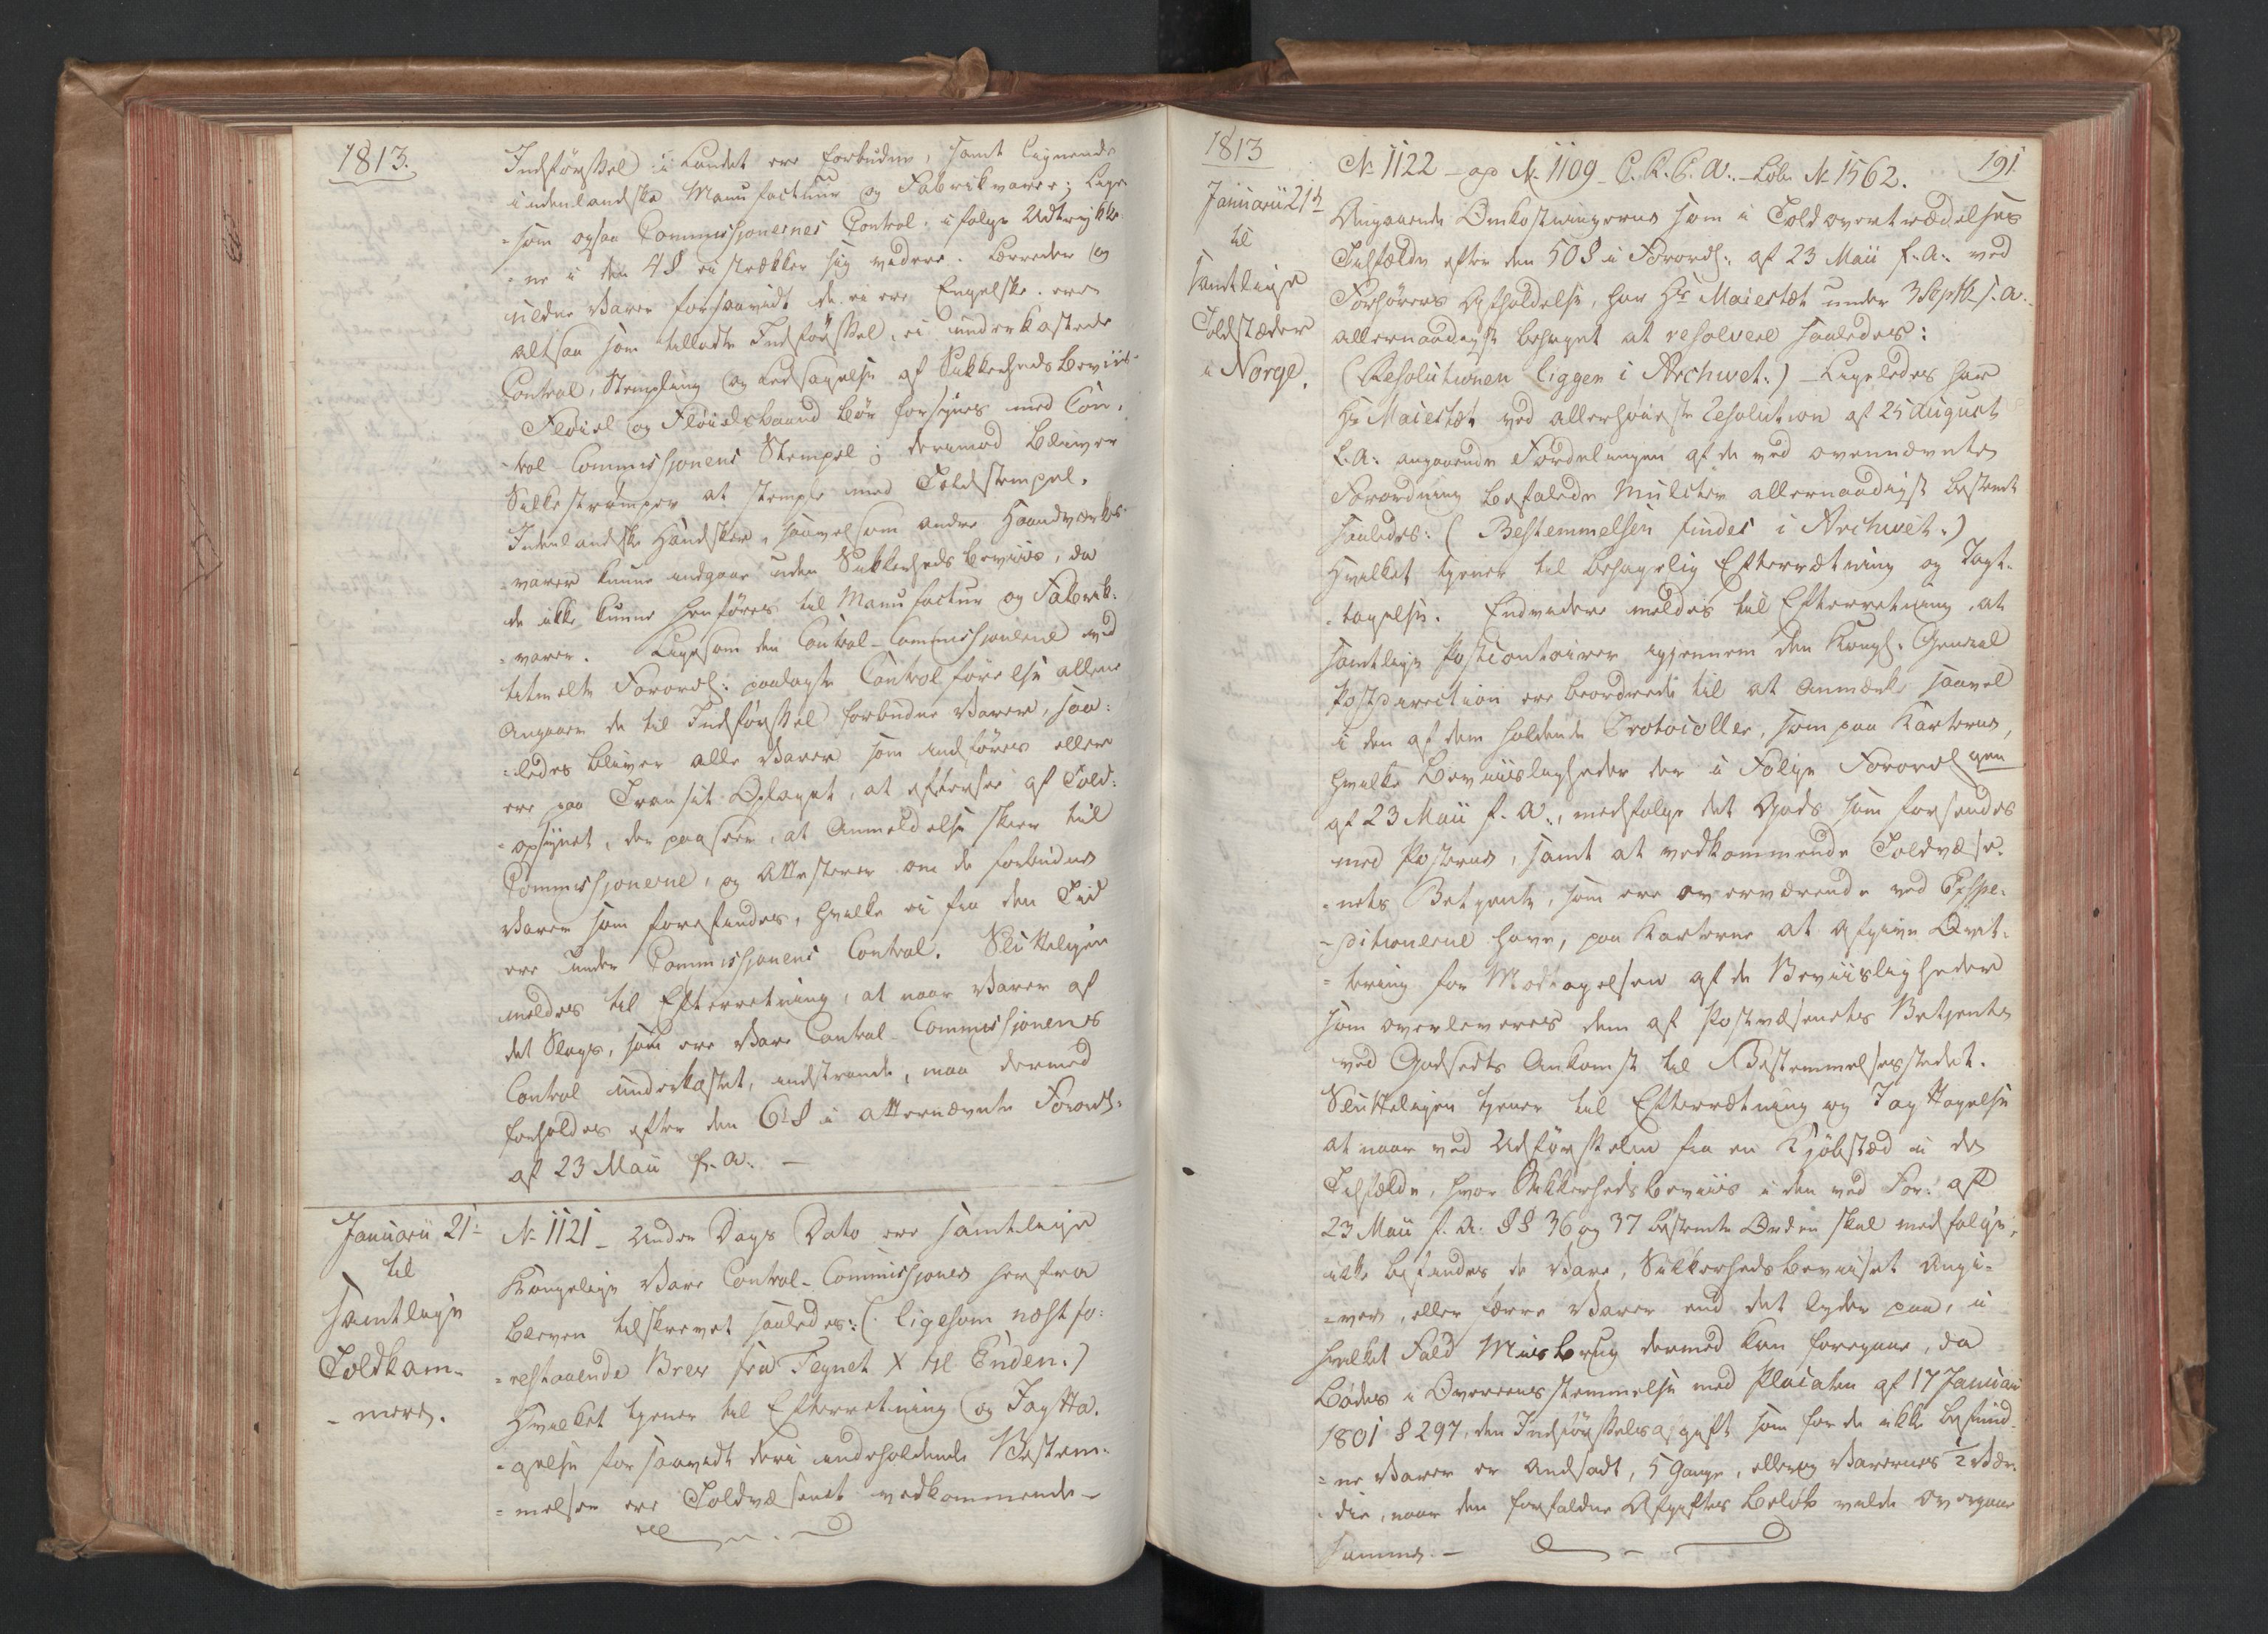 1813.
Indførssel i Landet ere forbudne, samt lignende
indenlandske Manufactuur og Fabrikvarer; Lige
-som ogsaa Commissjonernes Control, ifølge Udtrykke
-ne i den 4 § ei strækker sig videre. Lærreder og
uldne Varer forsaavidt de ei ere Engelske, ere
altsaa som tilladte Indførssel, ei underkastede
Control, Stempling og Ledsagelse af SikkerhedsBeviis
Fløiel og Fløielsbaand bør forsynes med Con-
-trol-Commissjonens Stempel; derimod bliver
Silkestrømper at stemple med Toldstempel.
Indenlandske Handsker, saavelsom andre Haandværks-
-varer kunne indgaae uden Sikkerheds beviis, da
de ikke kunne henføres til Manufactur og Fabrik-
-varer. Ligesom den Control-Commissjonerne ved
bemeldte Forord: paalagte Controlførelse allene
angaaer de til Indførssel forbudne Varer, saa-
-ledes bliver alle Varer som indføres eller
ere paa Transit-Oplaget, at eftersee af Told-
-opsynet, der paaseer, at Anmeldelse skeer til
Commissjonerne, og attesterer om de forbudne
Varer som forefindes, hvilke ei fra den Tid
ere under Commissjonens Control. Sluttelig
meldes til Efterretning, at naar Varer af
det Slags, som ere Vare Control-Commissjonens
Control underkastet, indstrande, maa dermed
forholdes efter den 61 § i atternævnte Forord:
af 23 Maii f. A. —
Januarii 21:
til
samtlige
Toldkam-
-mere.
No 1121 – Under Dags Dato ere samtlige
Kongelige Vare Control-Commissjoner herfra
bleven tilskrevet saaledes: (ligesom næst fo-
-restaaende Brev fra Tegnet X til Enden.)
Hvilket tjener til Efterretning og Iagtta-
-gelse forsaavidt deri indeholdende Bestem-
-melser ere Toldvæsenet vedkommende –
1813
191
Januarii 21de
til
samtlige
Toldstæder
i Norge.
No 1122 – No 1109 – Lob. No 1562.
Angaaende Omkostningerne som i Toldovertrædelses
Tilfælde efter den 50 § i Forord: af 23 Maii f. A. ved
Forhørers Afholdelse, har Hs Maiestæt under 3 Septb. s. A.
allernaadigst behaget at resolvere saaledes:
(Resolutionen ligger i Archivet.) – Ligeledes har
Hs Maiestæt ved allerhøieste Resolution af 25 August
s. A. angaaende Fordelingen af de ved ovennævnte
Forordning befalede Mulcter allernaadigst bestemt
saaledes: (Bestemmelsen findes i Archivet.)
Hvilket tjener til behagelig Efterretning og Iagt-
-tagelse. Endvidere meldes til Efterretning, at
samtlige Postcontoirer igjennem den Kongl. General
Postdirection ere beordrede til at anmærke saavel
i den af dem holdende Protocoller, som paa Karterne,
hvilke Beviisligheder der i Følge Forordgen
af 23 Maii f. A., medfølge det Gods som forsendes
med Posterne, samt at vedkommende Toldvæse-
-nets Betjente, som ere overværende ved Expe-
-ditionerne have, paa Karterne at afgive Qvit-
-tering for Modtagelsen af de Beviisligheder
som overleveres dem af Postvæsenets Betjente
ved Godsets Ankomst til Bestemmelsesstedet.
Sluttelig tjener til Efterretning og Iagttagelse
at naar ved Udførsselen fra en Kjøbstæd i de
Tilfælde, hvor Sikkerhedsbeviis i den ved For: af
23 Maii f. A. §§ 36 og 37 bestemte Orden skal medfølge,
ikke befindes de Vare, Sikkerhedsbeviiset angi-
-ver, eller færre Varer end det lyder paa, i
hvilket Fald Misbrug dermed kan foregaae, da
bødes i Overeensstemmelse med Placaten af 17 Januari
1801 § 297, den Indførsselsafgift som for de ikke befund-
-ne Varer er ansadt, 5 Gange, eller og Varernes ½ Vær-
-die, naar den forfaldne Afgiftes Beløb vilde overgaae
samme. –